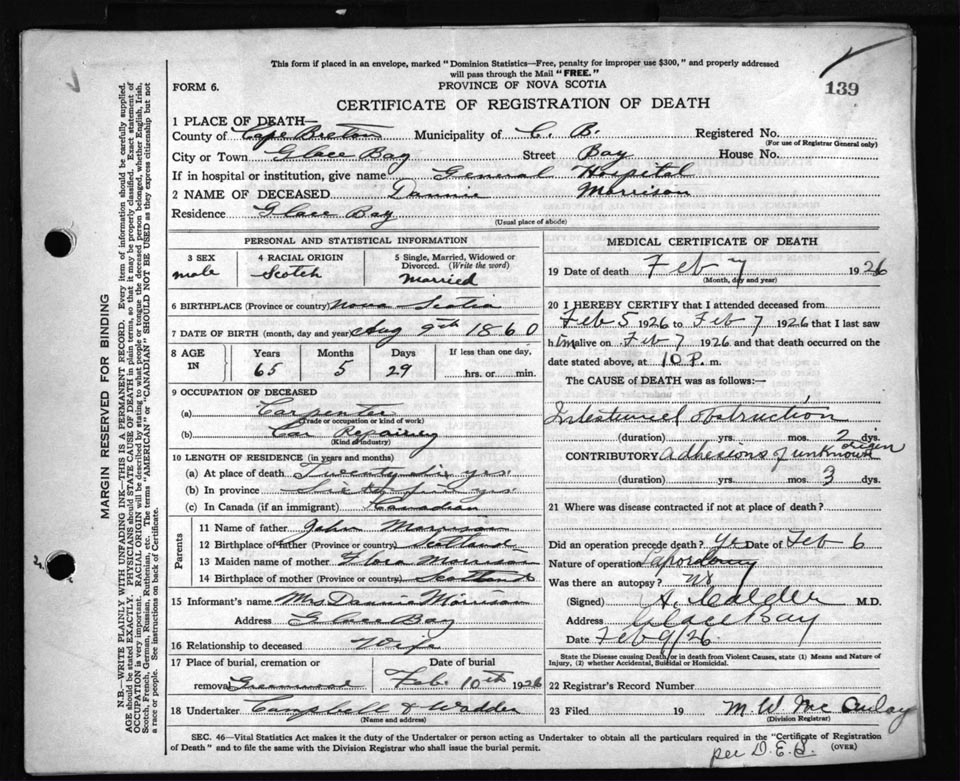 This form if placed in an envelope, marked "Dominion Statistics—Free, penalty for improper use $300," and properly addressed
will pass through the Mail "FREE."
FORM 6.
PROVINCE OF NOVA SCOTIA
139
CERTIFICATE OF REGISTRATION OF DEATH
1 PLACE OF DEATH—
County of Cape Breton Municipality of C. B. Registered No.
(For use of Registrar General only)
City or Town Glace Bay Street Bay House No.
If in hospital or institution, give name General Hospital
2 NAME OF DECEASED Dannie Morrison
Residence Glace Bay
(Usual place of abode)
PERSONAL AND STATISTICAL INFORMATION
3 SEX 4 RACIAL ORIGIN 5 Single, Married, Widowed or
Divorced. (Write the word)
male Scotch Married
6 BIRTHPLACE (Province or country) Nova Scotia
7 DATE OF BIRTH (month, day and year) Aug 9th 1860
8 AGE IN Years Months Days If less than one day,
65 5 29 hrs. or min.
9 OCCUPATION OF DECEASED
(a) Carpenter
(Trade or occupation or kind of work)
(b) Car Repairing
(Kind of industry)
10 LENGTH OF RESIDENCE (in years and months)
(a) At place of death Twenty six yrs
(b) In province Sixty five yrs
(c) In Canada (if an immigrant) Canadian
Parents
11 Name of father John Morrison
12 Birthplace of father (Province or country) Scotland
13 Maiden name of mother Flora Morrison
14 Birthplace of mother (Province or country) Scotland
15 Informant's name Mrs Dannie Morrison
Address Glace Bay
16 Relationship to deceased Wife
17 Place of burial, cremation or Date of burial
removal Greenwood Feb. 10th 1926
18 Undertaker Campbell & Wadden
(Name and address)
MEDICAL CERTIFICATE OF DEATH
19 Date of death Feb 7 1926
(Month, day and year)
20 I HEREBY CERTIFY that I attended deceased from
Feb 5 1926 to Feb 7 1926 that I last saw
him alive on Feb 7 1926 and that death occurred on the
date stated above, at 10 P. m.
The CAUSE of DEATH was as follows:—
Intestinal obstruction
(duration) yrs. mos. 2 dys.
CONTRIBUTORY adhesions of unknown origin
(duration) yrs. mos. 3 dys.
21 Where was disease contracted if not at place of death?
Did an operation precede death? Yes Date of Feb 6
Nature of operation
Was there an autopsy? No
(Signed) A. M.D.
Address Glace Bay
Date Feb 9/26.
State the Disease causing Death, or in death from Violent Causes, state (1) Means and Nature of
Injury, (2) whether Accidental, Suicidal or Homicidal.
22 Registrar's Record Number
23 Filed 19 M. W. McAulay
(Division Registrar)
SEC. 46—Vital Statistics Act makes it the duty of the Undertaker or person acting as Undertaker to obtain all the particulars required in the "Certificate of Registration
of Death" and to file the same with the Division Registrar who shall issue the burial permit.
(OVER)
per D.E.S.
MARGIN RESERVED FOR BINDING
N.B.—WRITE PLAINLY WITH UNFADING INK—THIS IS A PERMANENT RECORD. Every item of information should be carefully supplied.
AGE should be stated EXACTLY. PHYSICIANS should STATE CAUSE OF DEATH in plain terms, so that it may be properly classified. Exact statement of
OCCUPATION is very important. RACIAL ORIGIN will be described by stating to what people or tongue the deceased person belonged, whether English, Irish,
Scotch, French, German, Russian, Ruthenian, etc. The terms "AMERICAN" or "CANADIAN" SHOULD NOT BE USED as they express citizenship but not
a race or people. See instructions on back of Certificate.